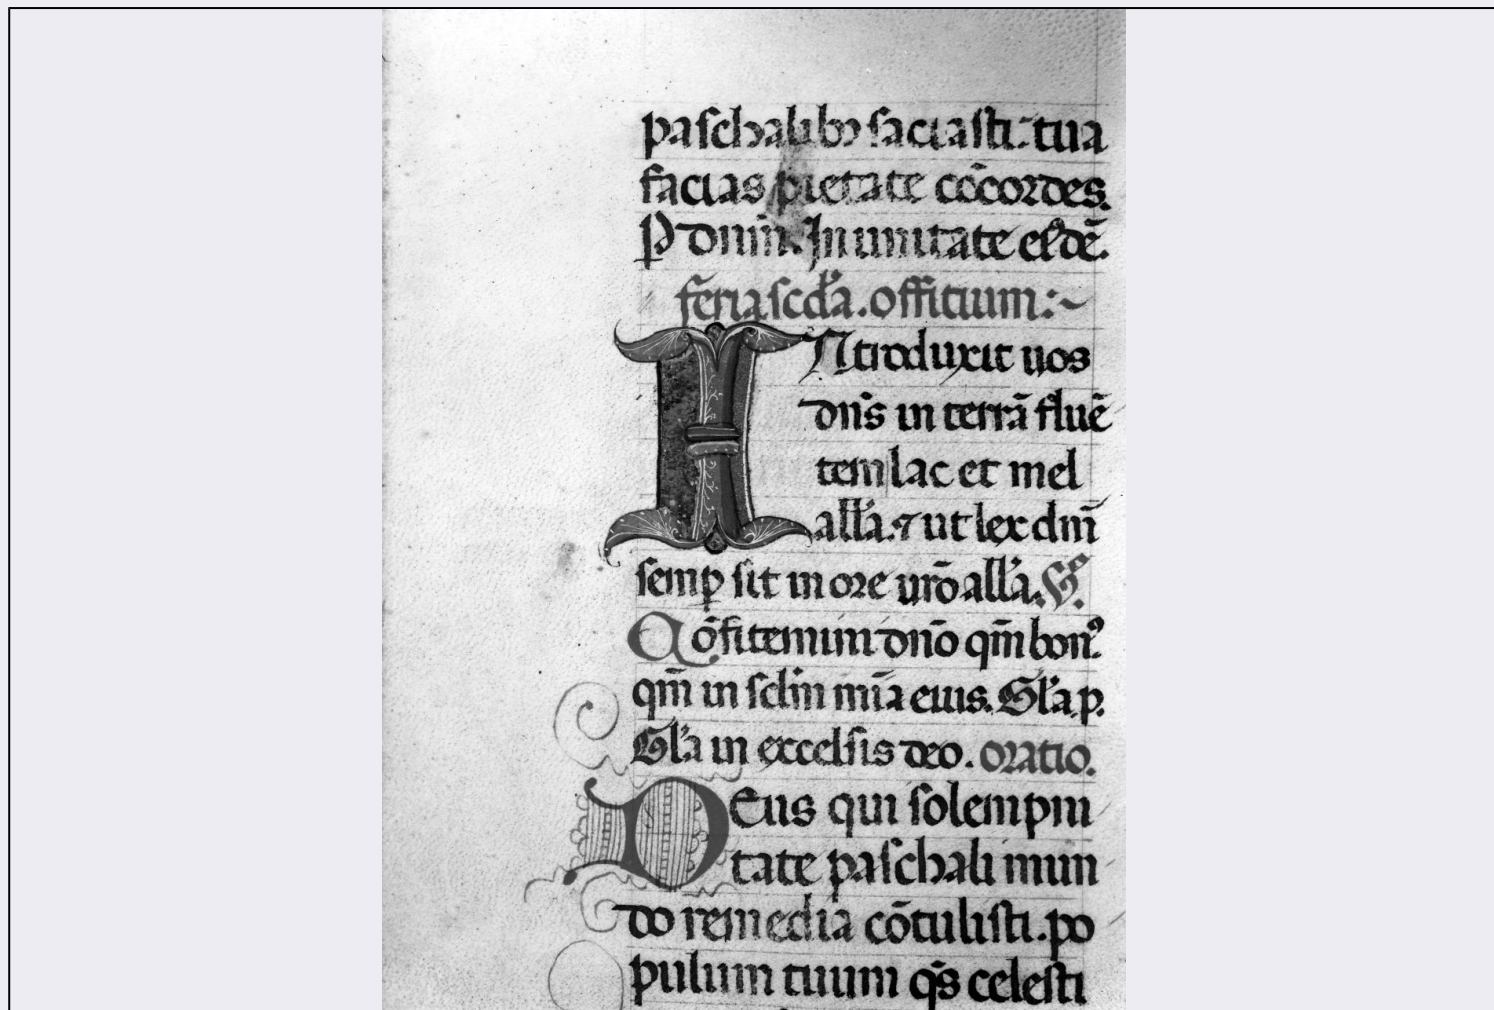 paschalibꝫ saciasti. tua
facias pietate cōcordes.
P dnm̄. In unitate eiꝰdē.
feria scďa. officium:~
INtroduxit uos
dn̄s in terrā fluē
tem lac et mel
all'a. ⁊ ut lex dn̄i
semꝑ sit in ore ur̄o all'a. p̄s.
Cōfitemini dn̄o qm̄ bonꝰ.
qm̄ in sc̄lm mīa eius. Gl'a p.
Gl'a in excelsis deo. oratio.
DEus qui solempni
tate paschali mun
do remedia cōtulisti. po
pulum tuum qs̄ celesti